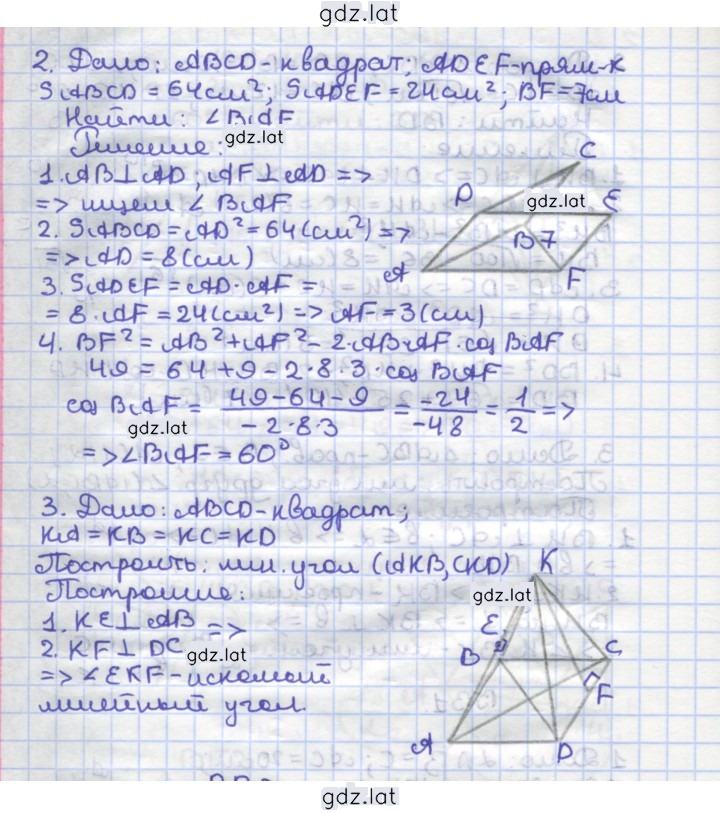 gdz.lat
2. Дано: ABCD-квадрат; ADEF-прям-к
SABCD = 64см²; SADEF = 24см²; BF=7см
Найти: ∠BAF
gdz.lat
Решение:
1. AB⊥AD; AF⊥AD =>
=> ищем ∠BAF
2. SABCD = AD² = 64(см²) =>
=> AD = 8(см)
3. SADEF = AD·AF =
= 8·AF = 24(см²) => AF = 3(см)
4. BF² = AB²+AF²-2·AB·AF·cos BAF
49 = 64+9-2·8·3·cos BAF
cos BAF = 49-64-9 / -2·8·3 = -24 / -48 = 1/2 =>
gdz.lat
=> ∠BAF = 60°
C
D gdz.lat E
B 7
A F
3. Дано: ABCD-квадрат;
KA=KB=KC=KD
Построить: лин. угол (AKB, CKD)
Построение:
1. KE⊥AB
2. KF⊥DC =>
gdz.lat
=> ∠EKF-искомый
линейный угол.
K
gdz.lat
E
B C
F
A D
gdz.lat